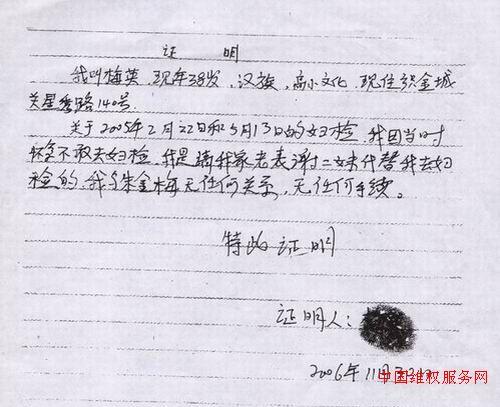 证 明
我叫梅英,现年38岁,汉族,高小文化,现住织金城
关星秀路140号.
关于2005年2月22日和5月13日的妇检,我因当时
怀孕不敢去妇检,我是请我家老表谢二妹代替我去妇
检的,我与朱金梅无任何关系,无任何手续。
特此证明
证明人:
2006年11月
中国维权服务网